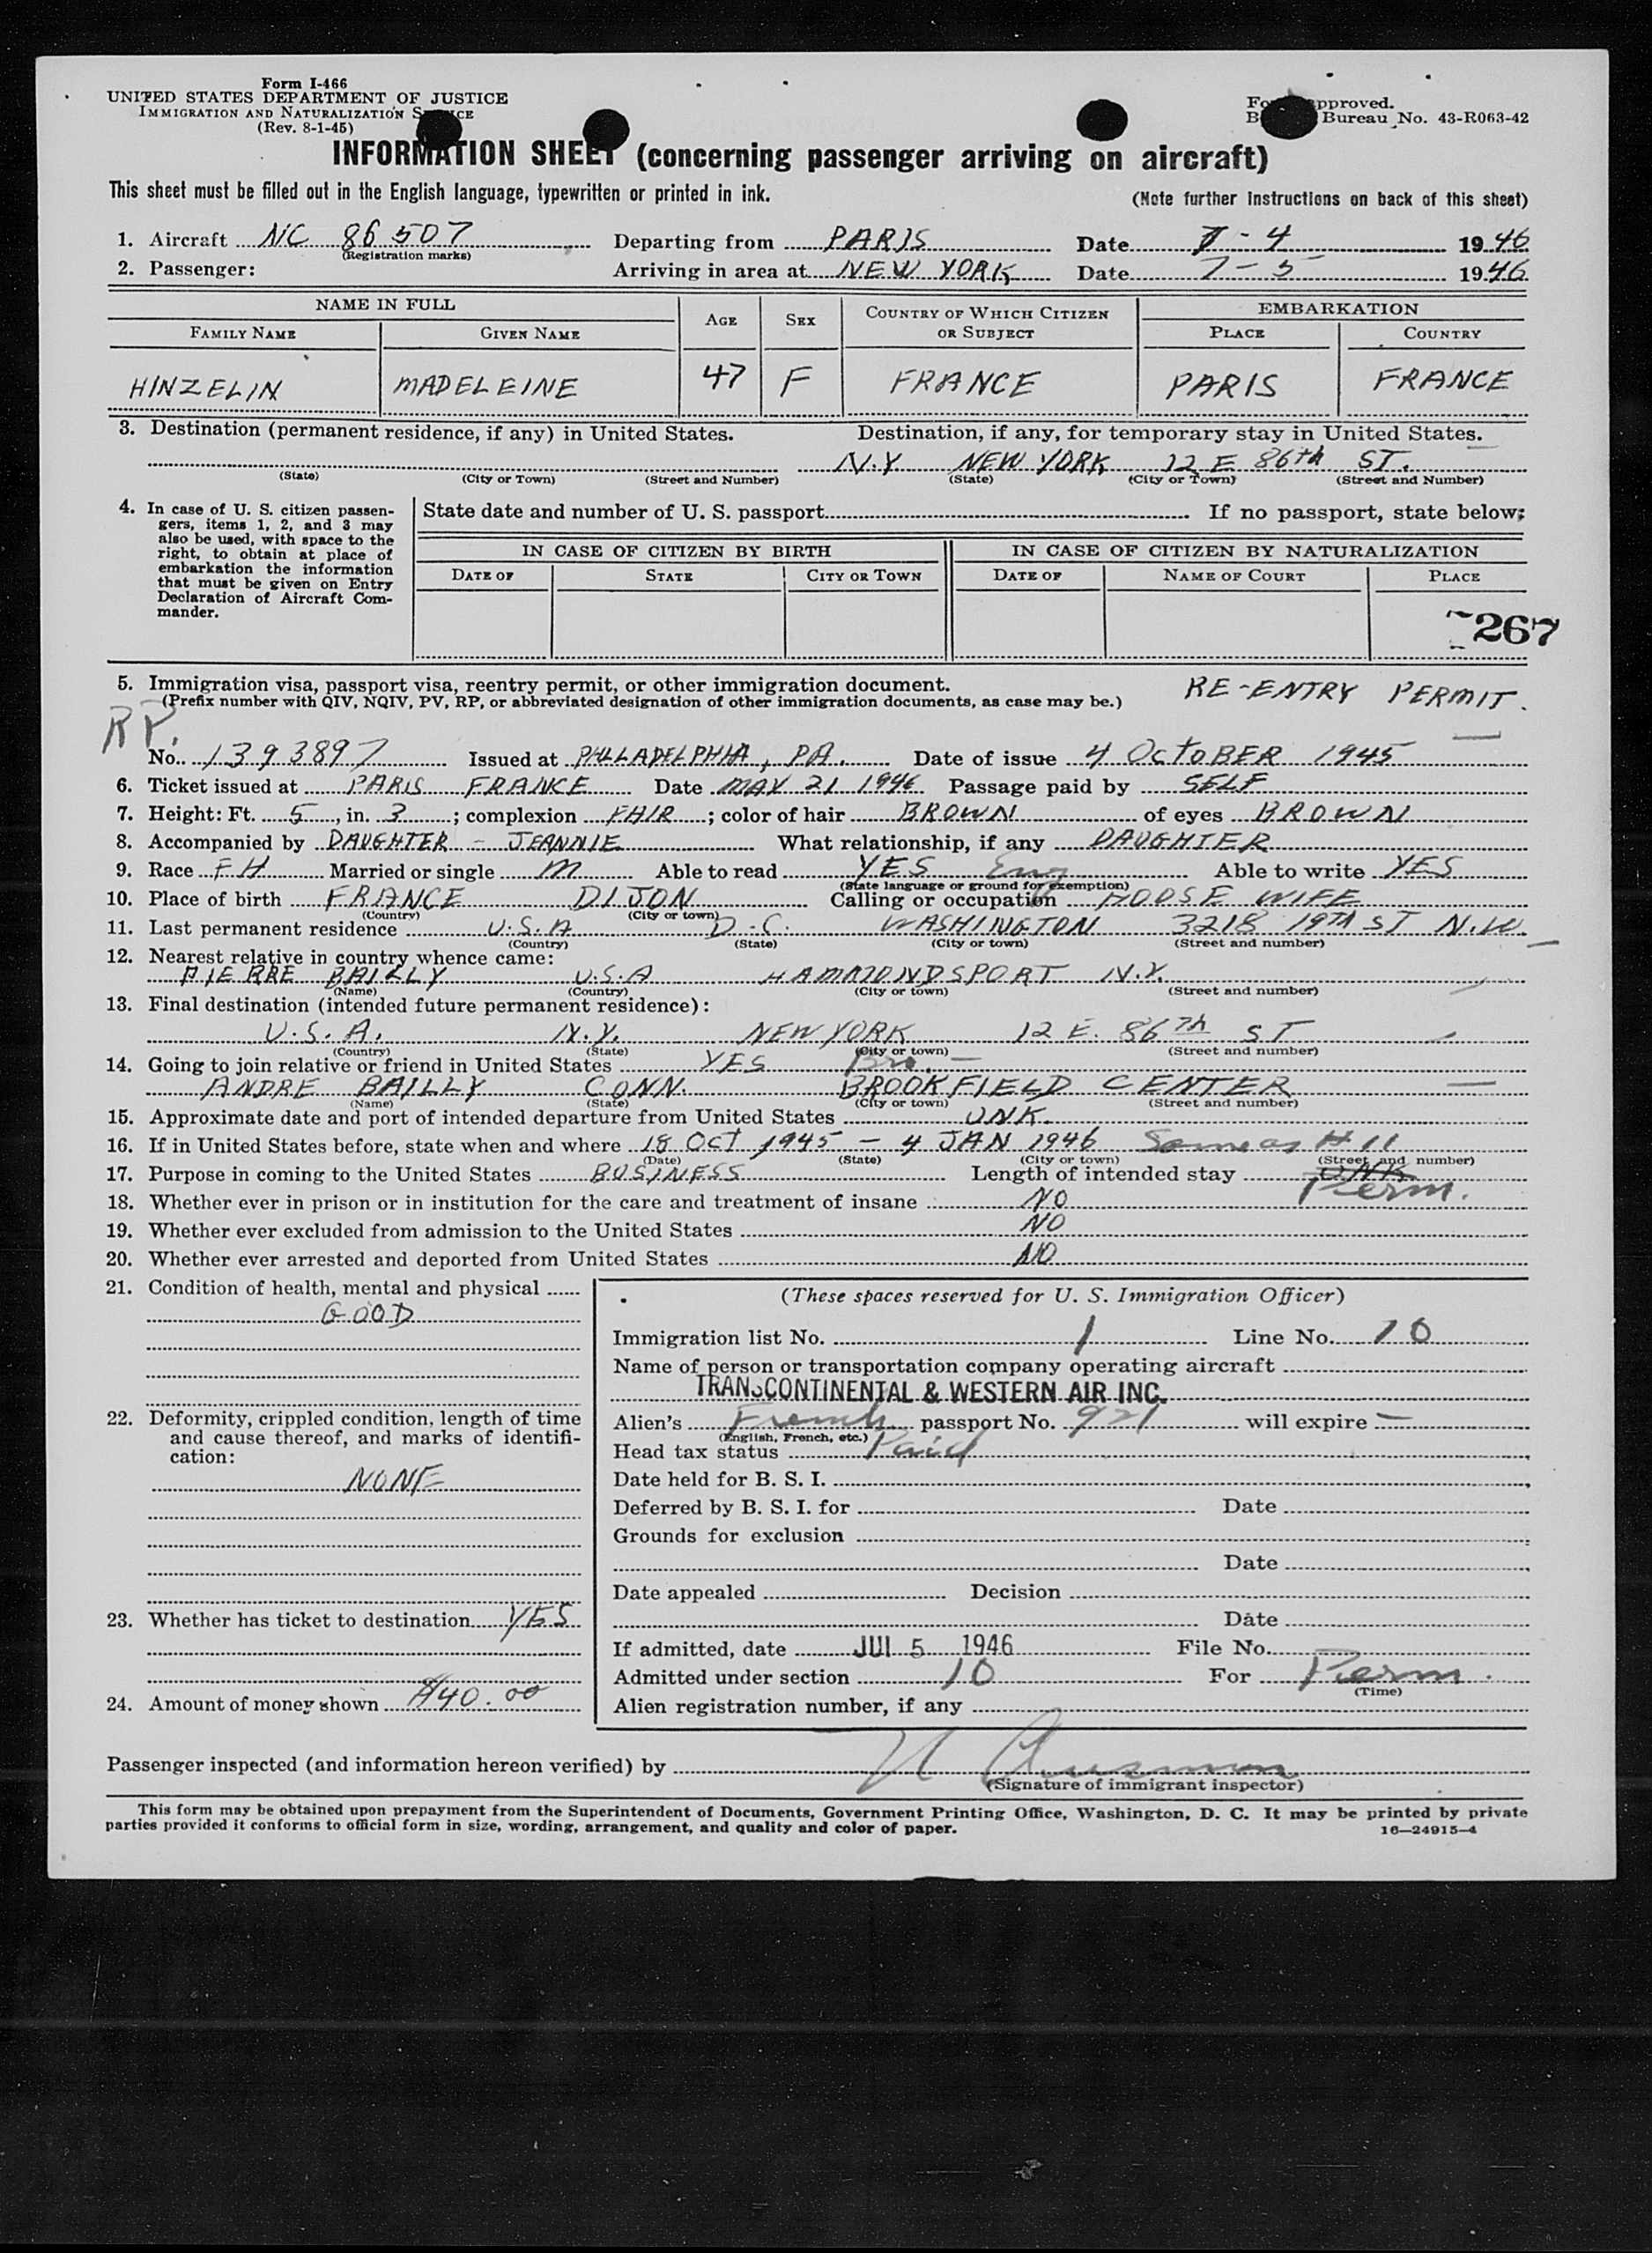 Form I-466
UNITED STATES DEPARTMENT OF JUSTICE
IMMIGRATION AND NATURALIZATION
(Rev. 8-1-45)
approved.
Bureau No. 43-R063-42
INFORMATION SHEET (concerning passenger arriving on aircraft)
This sheet must be filled out in the English language, typewritten or printed in ink.
(Note further instructions on back of this sheet)
1. Aircraft NC 86507 Departing from PARIS Date 7-4 1946
(Registration marks)
2. Passenger: Arriving in area at NEW YORK Date 7-5 1946
NAME IN FULL AGE SEX COUNTRY OF WHICH CITIZEN OR SUBJECT EMBARKATION
FAMILY NAME GIVEN NAME PLACE COUNTRY
HINZELIN MADELEINE 47 F FRANCE PARIS FRANCE
3. Destination (permanent residence, if any) in United States. Destination, if any, for temporary stay in United States.
N.Y. NEW YORK 12 E 86th ST.
(State) (City or Town) (Street and Number) (State) (City or Town) (Street and Number)
4. In case of U. S. citizen passengers, items 1, 2, and 3 may also be used, with space to the right, to obtain at place of embarkation the information that must be given on Entry Declaration of Aircraft Commander.
State date and number of U. S. passport If no passport, state below:
IN CASE OF CITIZEN BY BIRTH IN CASE OF CITIZEN BY NATURALIZATION
DATE OF STATE CITY OR TOWN DATE OF NAME OF COURT PLACE
267
5. Immigration visa, passport visa, reentry permit, or other immigration document. RE-ENTRY PERMIT.
(Prefix number with QIV, NQIV, PV, RP, or abbreviated designation of other immigration documents, as case may be.)
RP.
No. 1393897 Issued at PHLLADELPHIA, PA. Date of issue 4 OCTOBER 1945
6. Ticket issued at PARIS FRANCE Date MAY 21 1946 Passage paid by SELF
7. Height: Ft. 5, in. 3; complexion FAIR; color of hair BROWN of eyes BROWN
8. Accompanied by DAUGHTER - JEANNIE What relationship, if any DAUGHTER
9. Race FH Married or single M Able to read YES Eng Able to write YES
(State language or ground for exemption)
10. Place of birth FRANCE DIJON Calling or occupation HOUSE WIFE
(Country) (City or town)
11. Last permanent residence U.S.A D.C. WASHINGTON 3218 19TH ST N.W.
(Country) (State) (City or town) (Street and number)
12. Nearest relative in country whence came:
PIERRE BAILLY U.S.A HAMMONDSPORT N.Y.
(Name) (Country) (City or town) (Street and number)
13. Final destination (intended future permanent residence):
U.S.A. N.Y. NEW YORK 12 E. 86TH ST
(Country) (State) (City or town) (Street and number)
14. Going to join relative or friend in United States YES Bro. —
ANDRE BAILLY CONN. BROOKFIELD CENTER
(Name) (State) (City or town) (Street and number)
15. Approximate date and port of intended departure from United States UNK.
16. If in United States before, state when and where 18 Oct 1945 - 4 JAN 1946 Same as #11
(Date) (State) (City or town) (Street and number)
17. Purpose in coming to the United States BUSINESS Length of intended stay UNK Perm.
18. Whether ever in prison or in institution for the care and treatment of insane NO
19. Whether ever excluded from admission to the United States NO
20. Whether ever arrested and deported from United States NO
21. Condition of health, mental and physical
GOOD
22. Deformity, crippled condition, length of time and cause thereof, and marks of identification:
NONE
23. Whether has ticket to destination YES
24. Amount of money shown $40.00
(These spaces reserved for U. S. Immigration Officer)
Immigration list No. 1 Line No. 10
Name of person or transportation company operating aircraft
TRANSCONTINENTAL & WESTERN AIR INC.
Alien's French passport No. 921 will expire —
(English, French, etc.)
Head tax status Paid
Date held for B. S. I.
Deferred by B. S. I. for Date
Grounds for exclusion
Date
Date appealed Decision
Date
If admitted, date JUL 5 1946 File No.
Admitted under section 10 For Perm.
(Time)
Alien registration number, if any
Passenger inspected (and information hereon verified) by
(Signature of immigrant inspector)
This form may be obtained upon prepayment from the Superintendent of Documents, Government Printing Office, Washington, D. C. It may be printed by private
parties provided it conforms to official form in size, wording, arrangement, and quality and color of paper.
16—24915-4